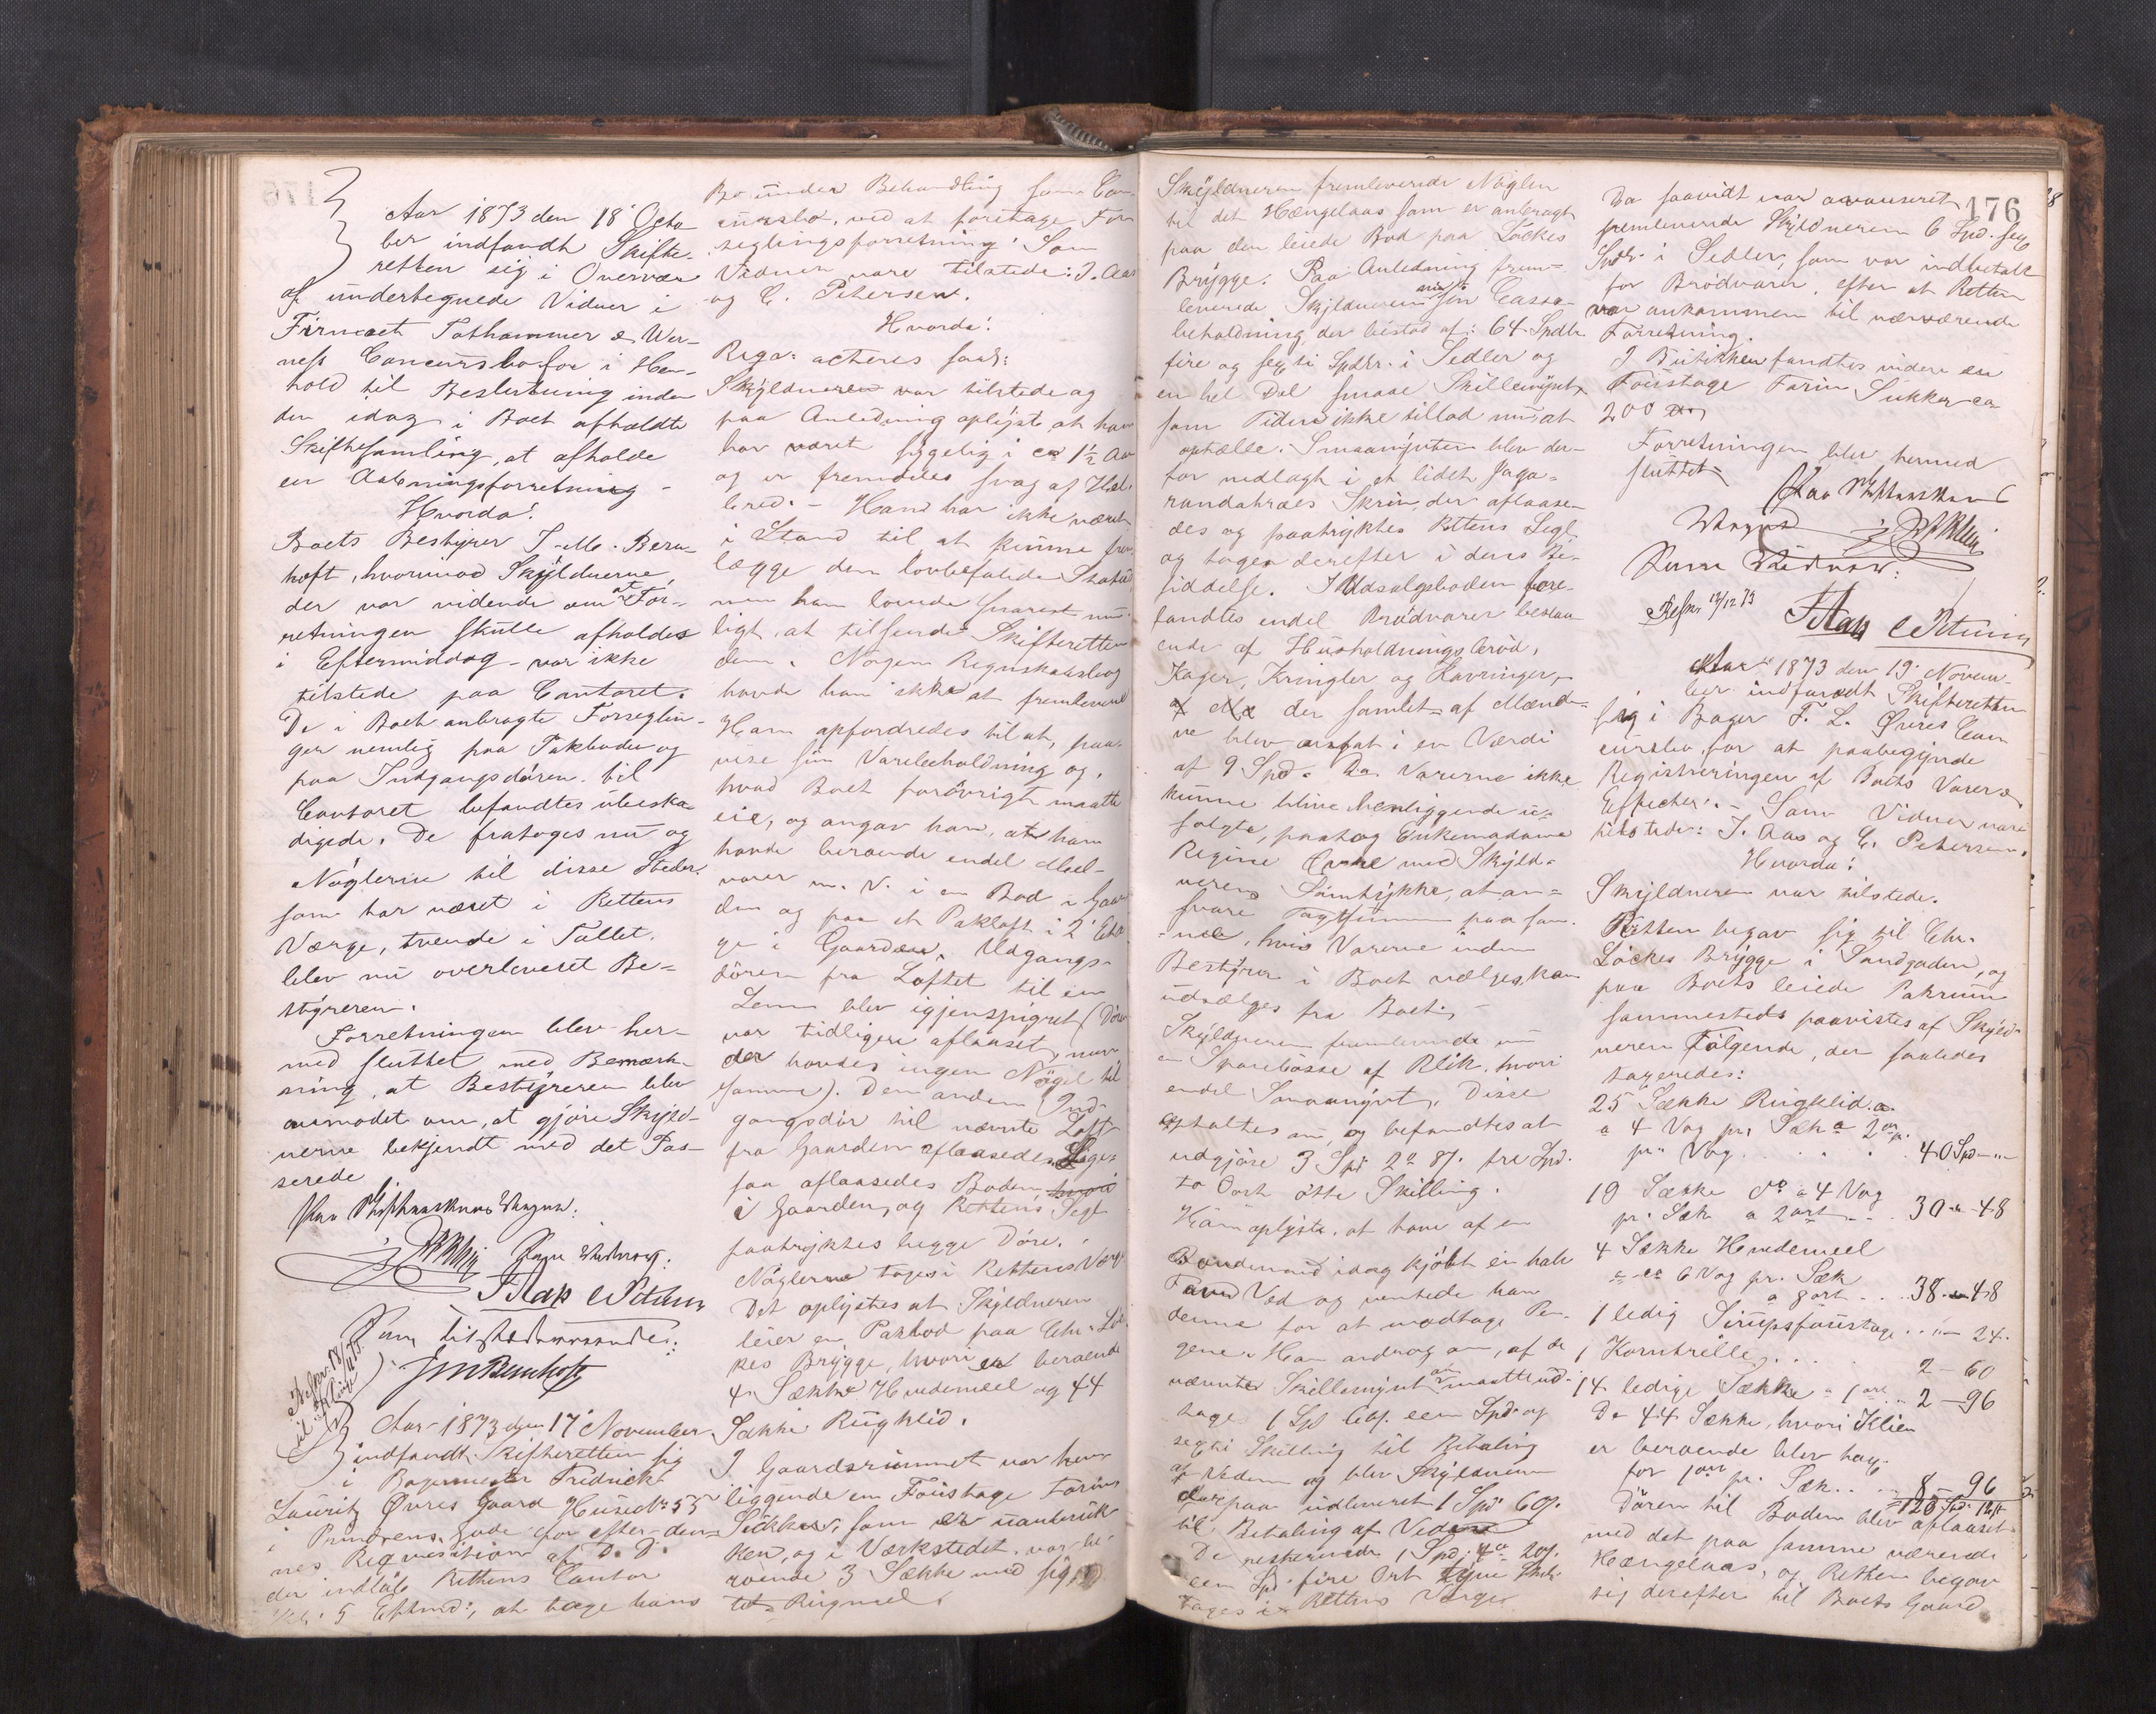 Aar 1873 den 18 Octo
ber indfandt Skifte-
retten sig i Overvær
af undertegnede Vidner i
Firmaet Tothammer & Wer-
ness Concursbo for i Hen-
hold til Beslutning inden
den idag i Boet afholdte
Skiftesamling, at afholde
en Aabningsforretning -
Hvorda!
Boets Bestyrer J. M. Bern-
hoft, hvorimod Skyldnerne,
der var vidende om at For-
retningen skulle afholdes
i Eftermiddag - var ikke
tilstede paa Contoret.
De i Boet anbragte Forseglin-
ger nemlig paa Pakboder og
paa Indgangsdøren til
Contoret befandtes ubeska-
digede. De fratoges nu og
Nøglerne til disse Steder,
som har været i Rettens
Værge, trende i Tallet,
blev nu overleveret Be-
styreren.
Forretningen blev her-
med sluttet med Bemærk-
ning, at Bestyreren blev
anmodet om, at gjøre Skyld-
nerne bekjendt med det Pas-
serede
Som Vidner:
J Aas C Petersen
Som tilstedeværende:
J M Bernhoft
Aar 1873 den 17 November
indfandt Skifteretten sig
i Bagermester Fredrick
Lauritz Øvres Gaard Huus No 55
i Prindsens gade for efter den-
nes Reqvisition af D. D.
der indløb Rettens Contor
Kl: 5 Eftmd:, at tage hans
Bo under Behandling som Con-
cursbo, ved at foretage For
seglingsforretning. Som
Vidner vare tilstede: J. Aas
og C. Petersen.
Hvorda!
Reqv: acteres saal:
Skyldneren var tilstede og
paa Anledning oplyste at han
har været sygelig i ca 1½ Aar
og er fremdeles svag af Hel-
bred. - Han har ikke været
i Stand til at kunne frem
lægge den lovbefalede Status,
men han lovede snarest mu-
ligt, at tilsende Skifteretten
den. Nogen Regnskabsbog
havde han ikke at fremlevere
Han opfordredes til at paa-
vise sin Varebeholdning og,
hvad Boet forøvrigt maatte
eie, og angav han, at han
havde beroende endel Meel-
varer m. V. i en Bod i Gaar
den og paa et Pakloft i 2 Eta
ge i Gaarden. Udgangs-
døren fra Loftet til en
Lem blev igjenspigret (Døren
var tidligere aflaaset, men
der havdes ingen Nøgel til
samme). Den anden Ind-
gangsdør til nævnte Loft
fra Gaarden aflaasedes. Lige-
saa aflaasedes Boden
i Gaarden, og Rettens Segl
paatryktes begge Døre.
Nøglerne toges i Rettens Værge
Det oplystes at Skyldneren
leier en Pakbod paa Chr. Løc
kes Brygge, hvori er beroende
4 Sække Hvedemeel og 44
Sække Rugklid.
I Gaardsrummet var hen
liggende en Foustage Farin
Sukker, som er uanbruk
ken, og i Værkstedet var be-
roende 3 Sække med sig
tet Rugmeel
176
Skyldneren fremleverede Nøglen
til det Hængelaas som er anbragt
paa den leiede Bod paa Løckes
Brygge. Paa Anledning frem-
leverede Skyldneren sin Cassa-
beholdning, der bestod af: 64 Spdlr
fire og sexti Spdlr. i Sedler og
en hel Del smaae Skillemynt,
som Tiden ikke tillod nu at
optælle. Smaamynten blev der-
for nedlagt i et lidet Jaga-
randatræes Skrin, der aflaase-
des og paatryktes Rettens Segl
og toges derefter i dens Be-
siddelse. I Udsalgsboden fore-
fandtes endel Brødvarer bestaa
ende af Husholdningsbrød,
Kager, Kringler og Kavringer,
der samlet af Mænde-
ne blev ansat i en Værdi
af 9 Spd. Da Varerne ikke
kunne blive henliggende u-
solgte, paatog Enkemadame
Regine med Skyld-
nerens Samtykke, at an-
svare Taxtsummen paa sam-
me, hvis Varerne inden
Bestyrer i Boet vælges, kan
udsælges fra Boet. -
Skyldneren fremleverede nu
en Sparebøsse af Blik, hvori
endel Smaamynt. Disse
optaltes nu, og befandtes at
udgjøre 3 Spd 2 8 s. tre Spd.
to Ort otte Skilling.
Han oplyste, at have af en
Bondemand idag kjøbt en halv
Favn Ved og ventede han
denne for at modtage Pen-
gene. Han androg om, af de
nævnte Skillemynt maatte ud-
tage 1 Spd 60 s. een Spd og
sexti Skilling til Betaling
af Veden og blev Skyldneren
derpaa udleveret 1 Spd 60 s.
til Betaling af Veden
De resterende 1 Spd. 4 20 s.
een Spd fire Ort tyve Skil.
toges i Rettens Værge
Da saavidt var avanseret
fremleverede Skyldneren 6 Spd. sex
Spdlr. i Sedler, som var indbetalt
for Brødvarer, efter at Retten
var ankommen til nærværende
Forretning.
I Butikken fandtes videre en
Foustage Farin Sukker ca
200
Forretningen blev hermed
sluttet
Som Vidner:
J Aas C Petersen
Aar 1873 den 19 Novem-
ber indfandt Skifteretten
sig i Bager F. L. Øvres Con
cursbo, for at paabegynde
Registreringen af Boets Varer &
Effecter. - Som Vidner vare
tilstede: J. Aas og C. Petersen.
Hvorda:
Skyldneren var tilstede.
Retten begav sig til Chr.
Løckes Brygge i Sandgaden, og
paa Boets leiede Pakrum
sammesteds paavistes af Skyld-
neren Følgende, der saaledes
taxeredes:
25 Sække Rugklid a
a 4 Vog pr. Sæk a 2 ort
pr. Vog . . . . 40 Spd - "
19 Sække do a 4 Vog
pr. Sæk a 2 ort . . . 30 - 48
4 Sække Hvedemeel
a ca 6 Vog pr. Sæk
a 8 ort . . . 38 - 48
1 ledig Sirupsfoustage . . " - 24.
1 Korntrille . . . . 2 - 60
14 ledige Sække a 1 ort . . 2 - 96
De 44 Sække, hvori Klien
er beroende blev tax.
for 1 ort pr. Sæk . . . 8 - 96
Døren til Boden blev aflaaset
med det paa samme værende
Hængelaas, og Retten begav
sig derefter til Boets Gaard